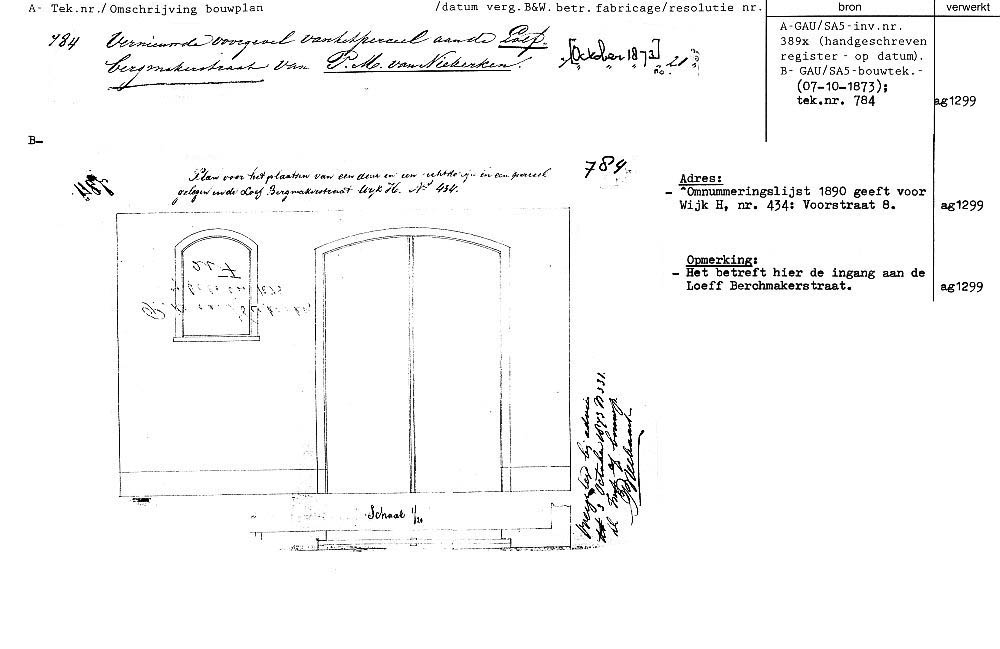 A- Tek.nr./Omschrijving bouwplan /datum verg.B&W.betr.fabricage/resolutie nr.
bron
verwerkt
784 Vernieuwde voorgevel van het perceel aan de Loef-
bergmakerstraat van P. M. van Niekerken. [October 1873]
A-GAU/SA5-inv.nr.
389x (handgeschreven
register - op datum).
B- GAU/SA5-bouwtek.-
(07-10-1873);
tek.nr. 784
ag1299
B-
784
Plan voor het plaatsen van een deur en een in een perceel
gelegen in de Loef Bergmakerstraat Wyk H. No 434.
Adres:
- "Omnummeringslijst 1890 geeft voor
Wijk H, nr. 434: Voorstraat 8.
ag1299
Opmerking:
- Het betreft hier de ingang aan de
Loeff Berchmakerstraat.
ag1299
Schaal 1/20